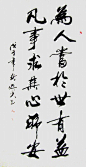 為人當於世有益
凡事求其心所安